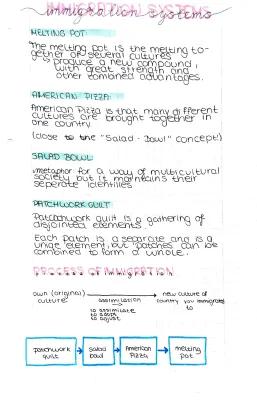 IMMIGRATION SYSTEMS
immigration systems
MELTING POT
The melting pot is the melting to-
gether of several cultures
↳ produce a new compound,
with great strength and
other combined advantages.
AMERICAN PIZZA
American Pizza is that many different
cultures are brought together in
one country.
(close to the "Salad - Bowl" concept)
SALAD BOWL
metaphor for a way of multicultural
society but it maintains their
seperate identities
PATCHWORK QUILT
Patchwork quilt is a gathering of
disjointed elements
Each patch is a separate and is a
unige element, but patches can be
combined to form a whole.
PROCESS OF IMMIGRATION
own (original) culture → new culture of country you immigrate to
assimilation
→
to assimilate
to adapt
to adjust
patchwork quilt → salad bowl → American Pizza → melting pot